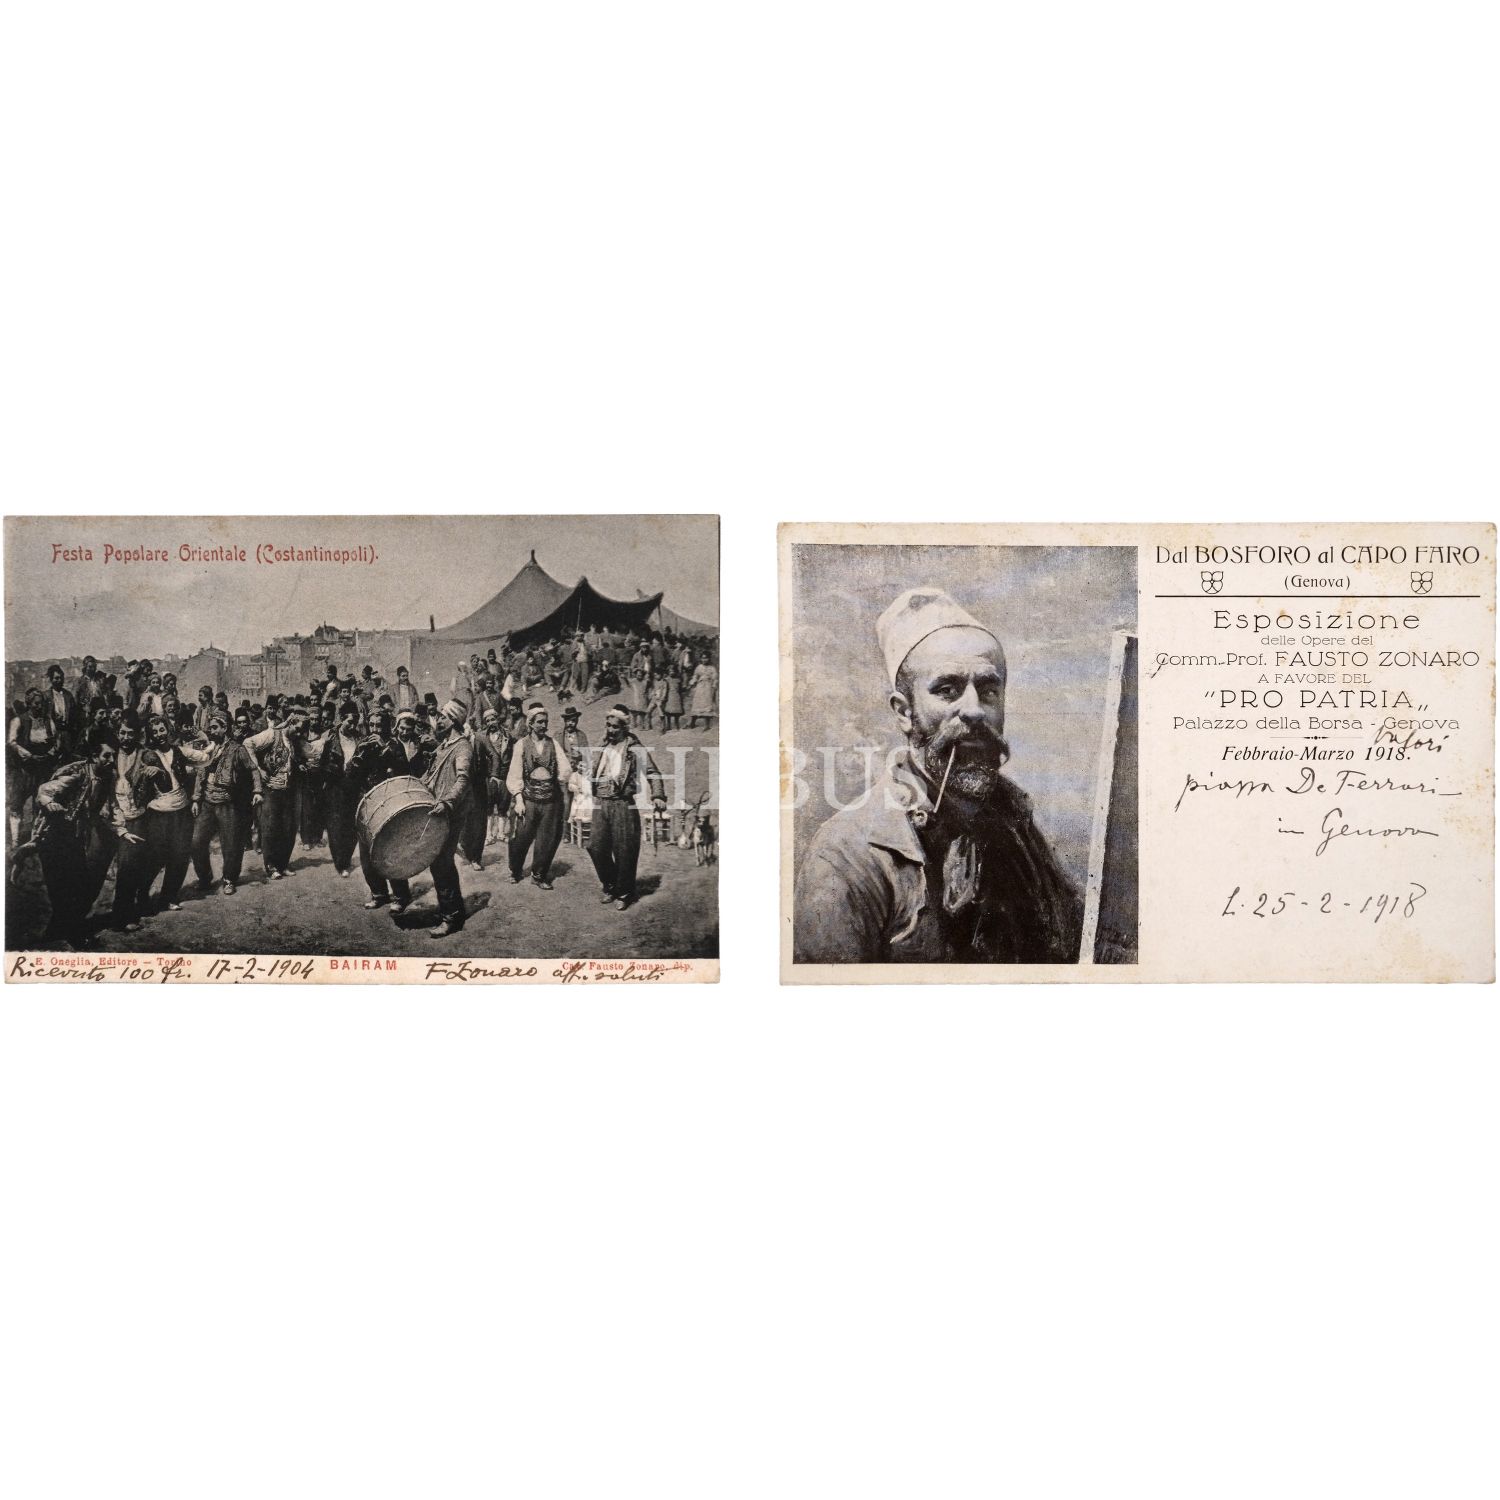 Festa Popolare Orientale (Costantinopoli).
E. Oneglia, Editore — Torino
BAIRAM
Cav. Fausto Zonaro, dip.
Ricevuto 100 fr. 17-2-1904
F Zonaro aff. saluti
PHEBUS
Dal BOSFORO al CAPO FARO
(Genova)
Esposizione
delle Opere del
Comm. Prof. FAUSTO ZONARO
A FAVORE DEL
"PRO PATRIA„
Palazzo della Borsa - Genova
Valori
Febbraio-Marzo 1918.
piazza De Ferrari
in Genova
L. 25-2-1918